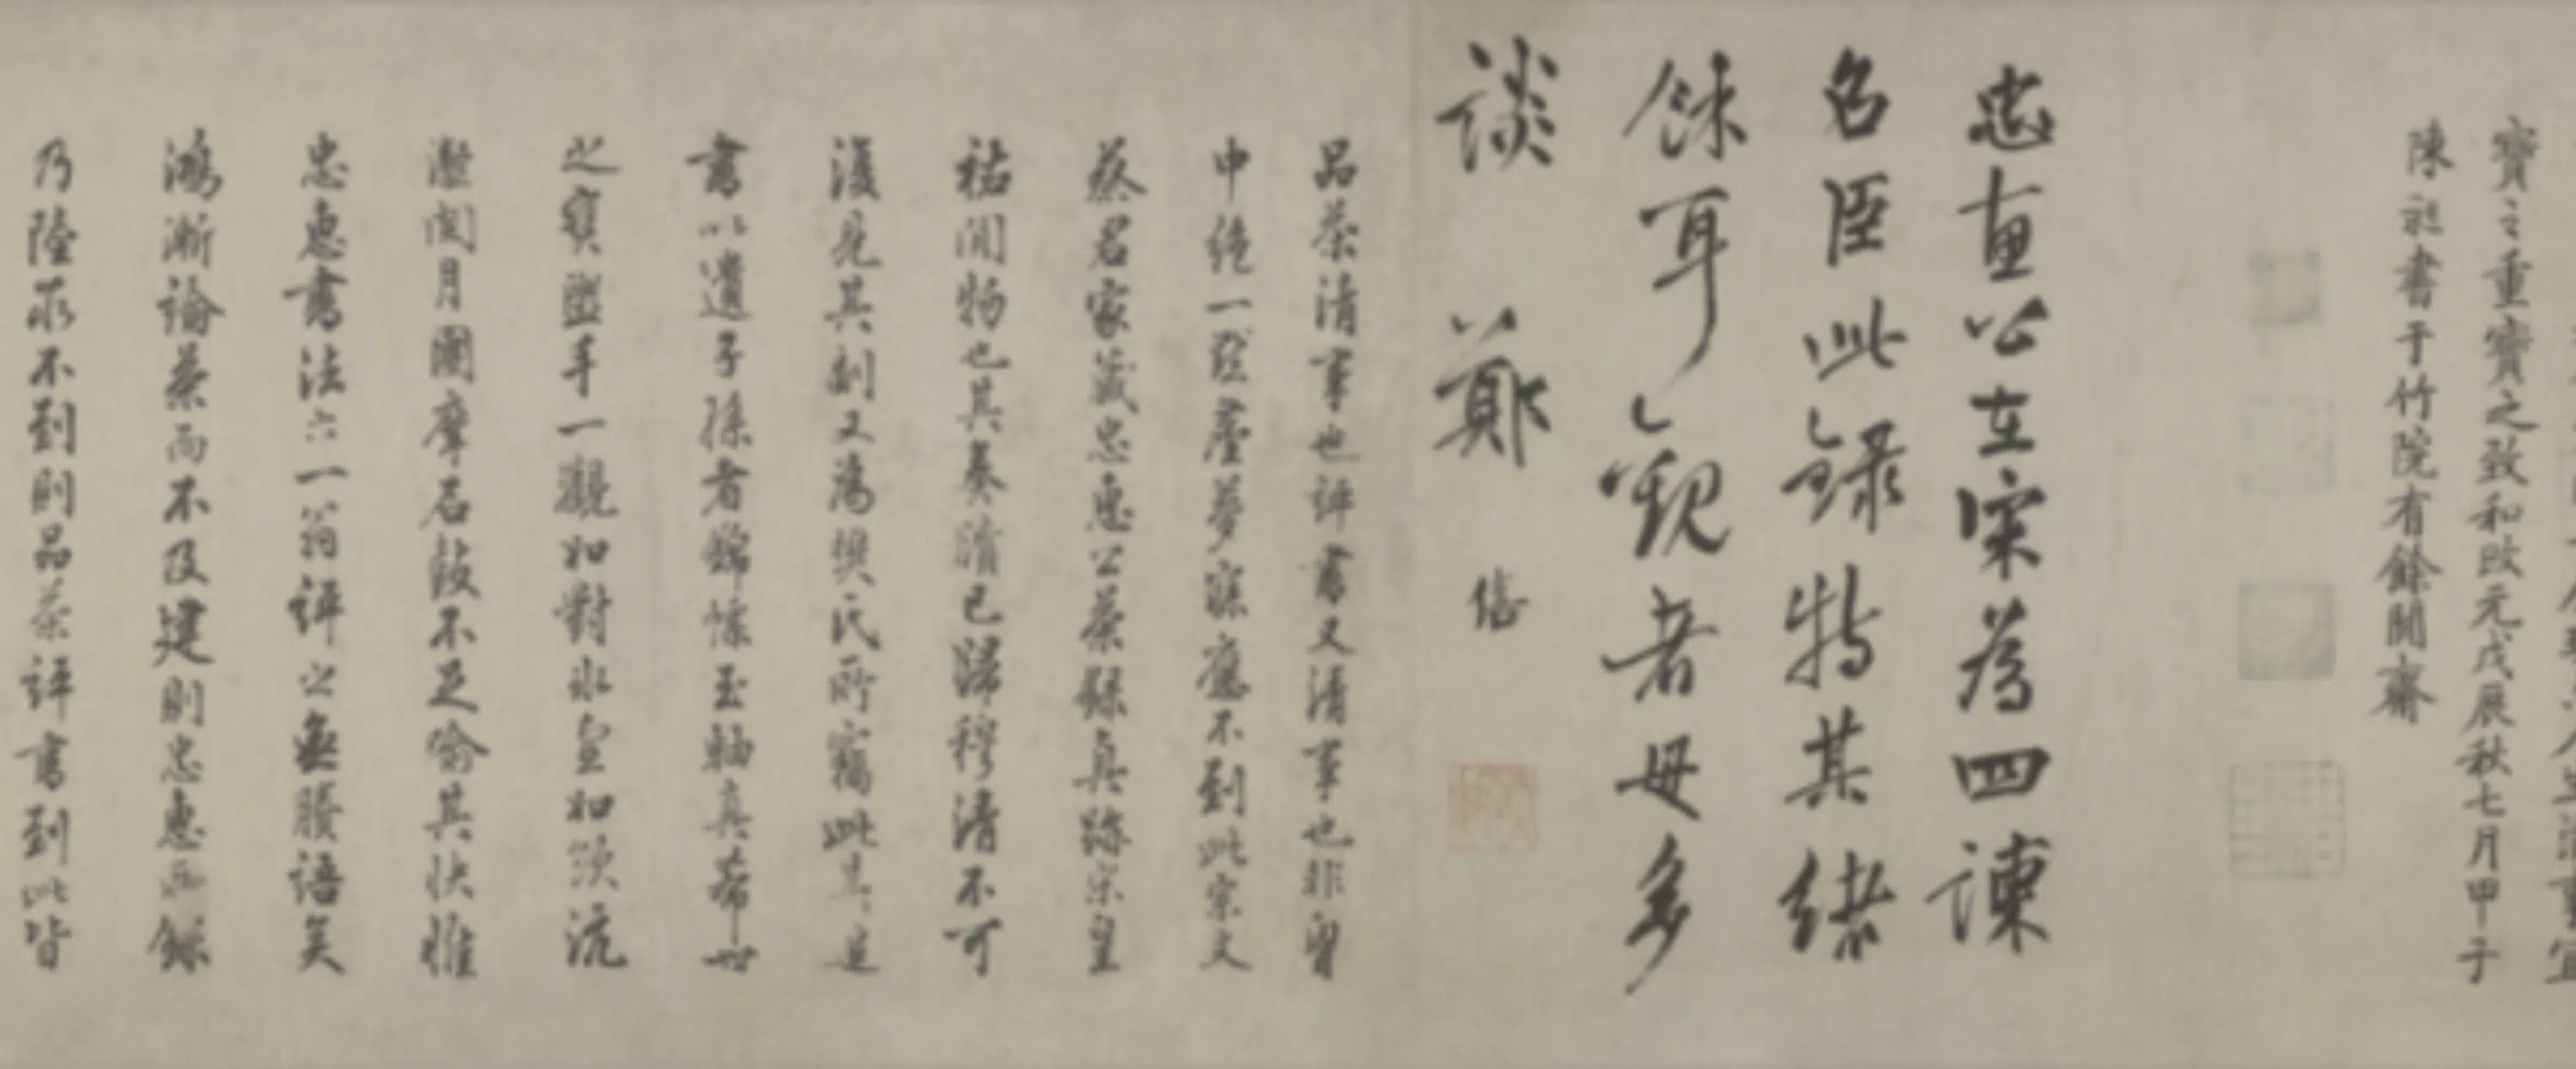 寶之重寶之致和改元戊辰秋七月甲子
陳祉書于竹院有餘閒齋
忠直公在宋為四諫
名臣此錄特其緒
餘耳觀者毋多
談 鄭僖
品茶清事也評書又清事也非胷
中絕一點塵夢寐應不到此宗文
蔡君家藏忠惠公茶録真跡宋皇
祐間物也其奏清已歸穆清不可
復見其副又為樊氏所竊此其追
書以遺子孫者錦幖玉軸真希世
之寶盥手一觀如對氷壺如飲沆
瀣閱月團摩石鼓不足喻其快惟
忠惠書法六一翁評之無賸語矣
鴻漸論茶而不及建則忠惠所録
乃陸羽不到則品茶評書到此皆